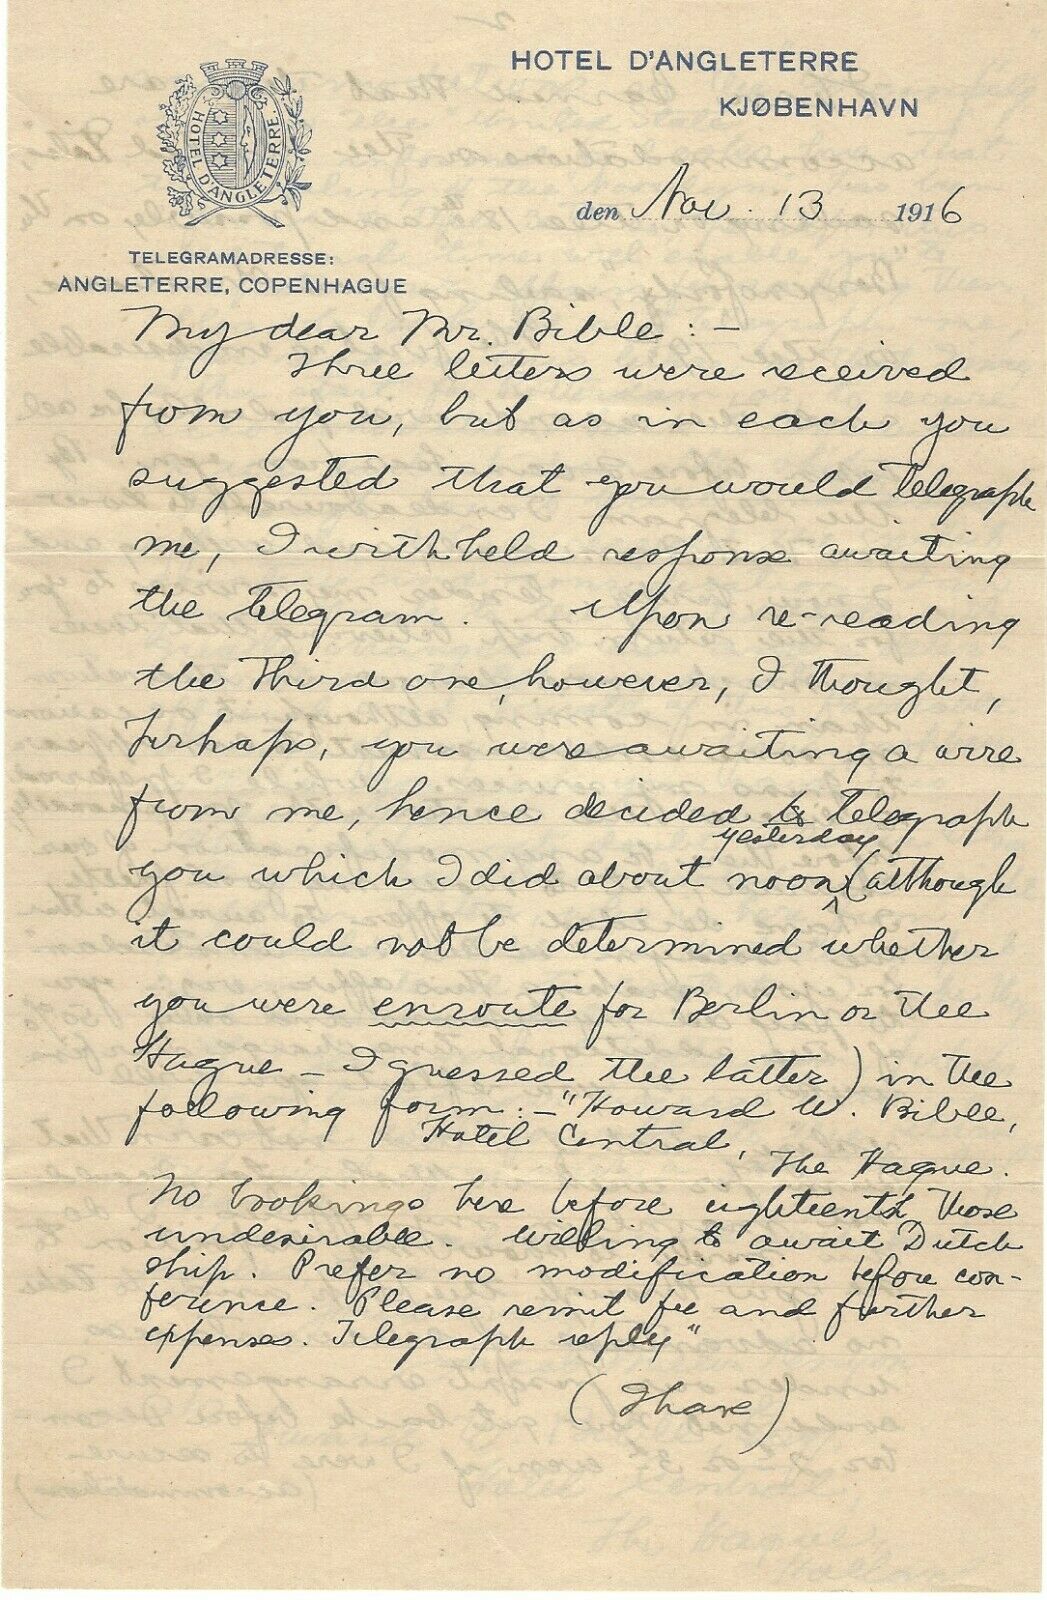 HOTEL D'ANGLETERRE
KJØBENHAVN
HOTEL D'ANGLETERRE.
den Nov. 13 1916
TELEGRAMADRESSE:
ANGLETERRE, COPENHAGUE
My dear Mr. Bible: —
Three letters were received
from you, but as in each you
suggested that you would telegraph
me, I withheld response awaiting
the telegram. Upon re-reading
the third one, however, I thought,
perhaps, you were awaiting a wire
from me, hence decided to telegraph
yesterday
you which I did about noon (although
it could not be determined whether
you were enroute for Berlin or the
Hague — I guessed the latter) in the
following form: — "Howard W. Bible,
Hotel Central,
The Hague.
No bookings here before eighteenth those
undesirable. Willing to await Dutch
ship. Prefer no modification before con-
ference. Please remit fee and further
expenses. Telegraph reply"